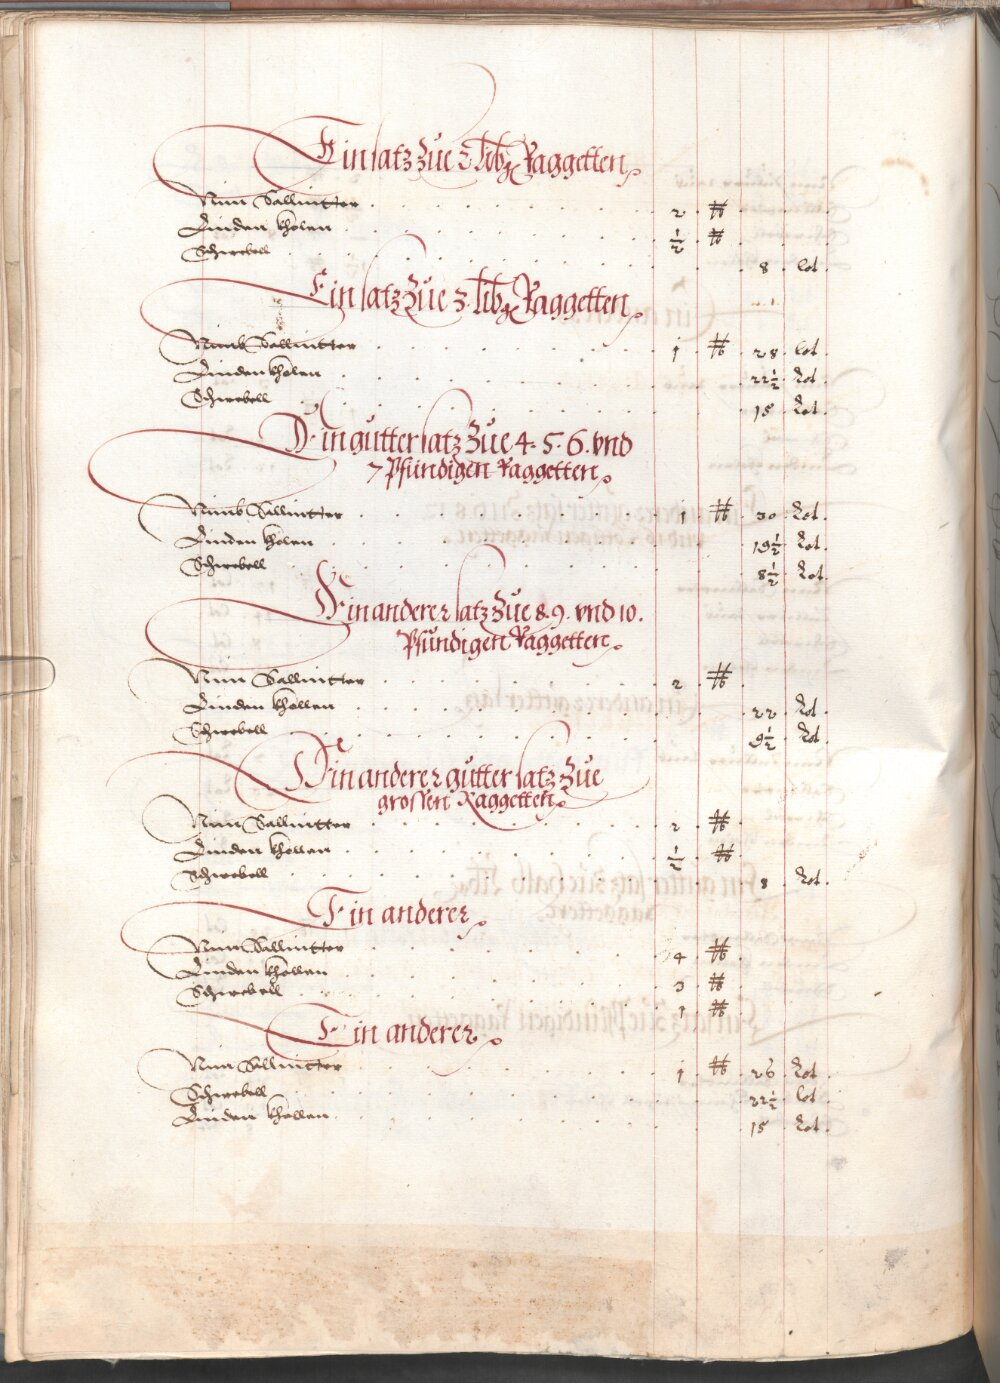 Ein satz zue 2 lib Raggetten
Nim Sallnitter 2 ℔
Linden kholen ½ ℔
Schwebell 8 lot
Ein satz zue 3 lib Raggetten
Nimb Sallnitter 1 ℔ 28 lot
Linden kholen 22½ Lot
Schwebell 15 Lot
Ein gutter satz zue 4. 5. 6. vnd
7 Pfündigen Raggetten
Nimb Sallnitter 1 ℔ 30 Lot
Linden kholen 19½ Lot
Schwebell 8½ Lot
Ein anderer satz zue 8. 9. vnd 10.
Pfündigen Raggetten
Nim Sallnitter 2 ℔
Linden khollen 22 Lot
Schwebell 9½ Lot
Ein anderer gutter satz zue
grossen Raggetten
Nim Sallnitter 2 ℔
Linden khollen ½ ℔
Schwebell 8 Lot
Ein anderer
Nim Sallnitter 4 ℔
Linden khollen 3 ℔
Schwebell 1 ℔
Ein anderer
Nim Sallnitter 1 ℔ 26 Lot
Schwebell 22½ lot
Linden khollen 15 Lot